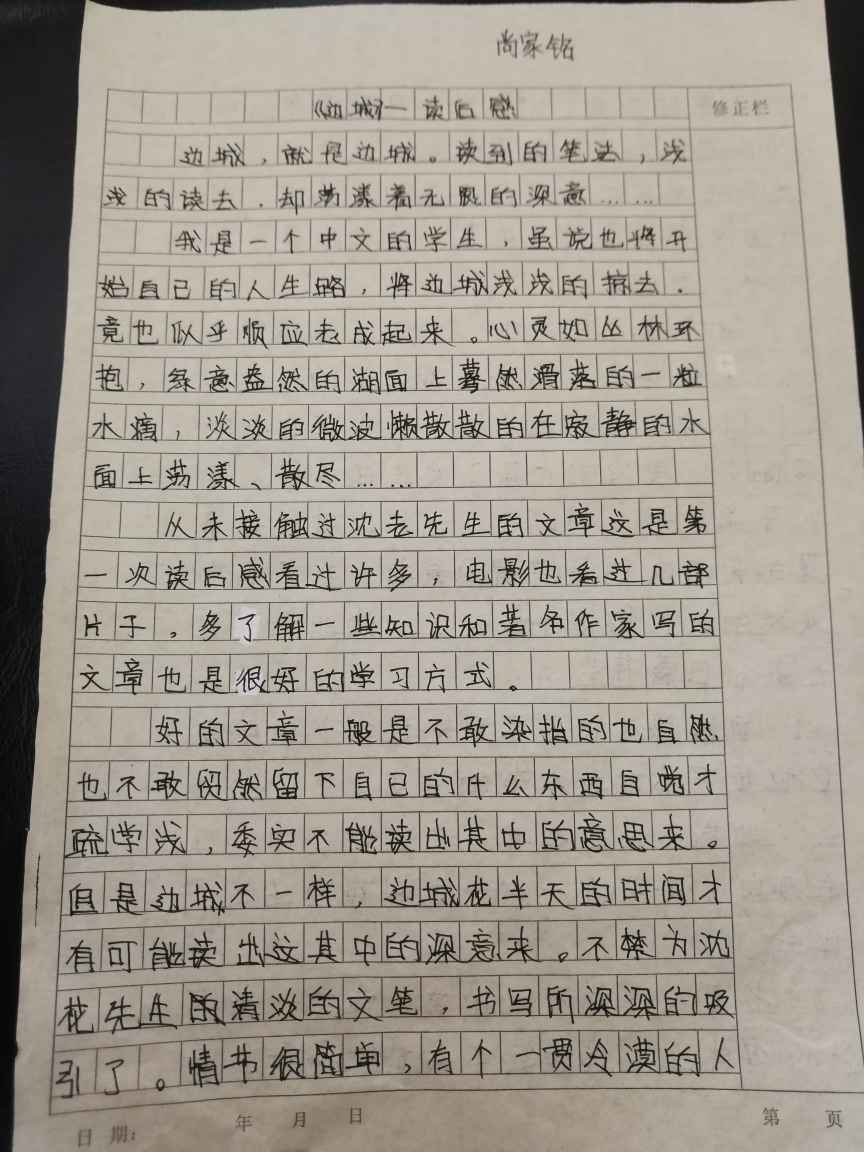 尚家铭
《边城》一读后感
修正栏
边城，就是边城。读到的笔法，浅
浅的读去．却荡漾着无限的深意……
我是一个中文的学生，虽说也将开
始自己的人生路，将边城浅浅的掠去．
竟也似乎顺应老成起来。心灵如丛林环
抱，绿意盎然的湖面上蓦然滑落的一粒
水滴，淡淡的微波懒散散的在寂静的水
面上荡漾、散尽……
从未接触过沈老先生的文章这是第
一次读后感看过许多，电影也看过几部
片子。多了解一些知识和著名作家写的
文章也是很好的学习方式。
好的文章一般是不敢染指的也自然
也不敢贸然留下自己的什么东西自觉才
疏学浅，委实不能读出其中的意思来。
但是边城不一样，边城花半天的时间才
有可能读出这其中的深意来。不禁为沈
先生的清淡的文笔，书写所深深的吸
引了。情节很简单，有个一贯冷漠的人
日期： 年 月 日 第 页